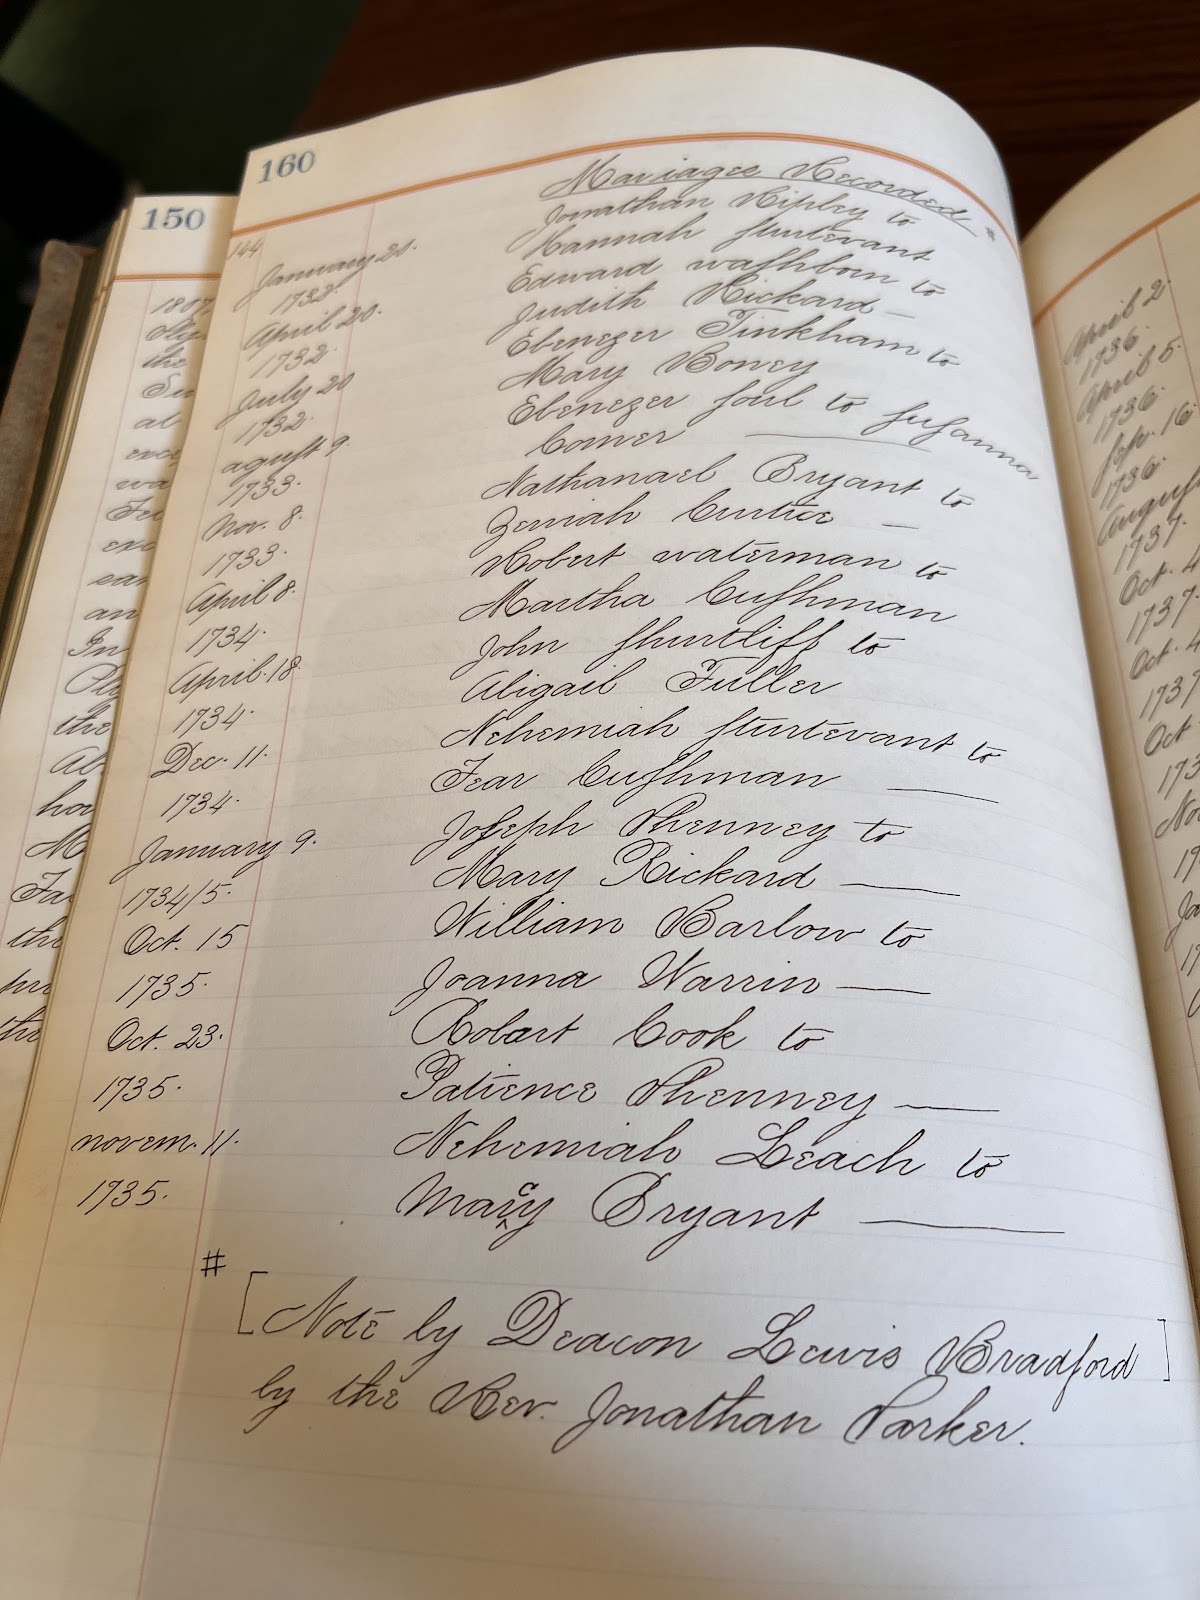 160
Mariages Recorded #
144
January 20. Jonathan Ripley to
1732. Hannah ſturtevant
April 20. Edward waſhborn to
1732. Judith Rickard —
July 20 Ebenezer Tinkham to
1732. Mary Boney
aguſt 9. Ebenezer ſoul to ſuſanna
1733. Comer —
Nov. 8. Nathanael Bryant to
1733. Zeruiah Curtice —
April 8. Robert waterman to
1734. Martha Cuſhman
April. 18. John ſhurtliff to
1734. Abigail Fuller
Dec. 11. Nehemiah ſturtevant to
1734. Fear Cuſhman —
January 9. Joſeph Phenney to
1734/5. Mary Rickard —
Oct. 15 William Barlow to
1735. Joanna Warrin —
Oct. 23. Robart Cook to
1735. Patience Phenney —
novem. 11. Nehemiah Leach to
1735. Marcy Bryant —
#
[Note by Deacon Lewis Bradford]
by the Rev. Jonathan Parker.
150
1807
the
al
an
the
how
the
April 2.
1736.
April 5.
1736.
ſep. 16
1736.
1737.
Oct. 4
1737.
Oct. 4
1737
Oct